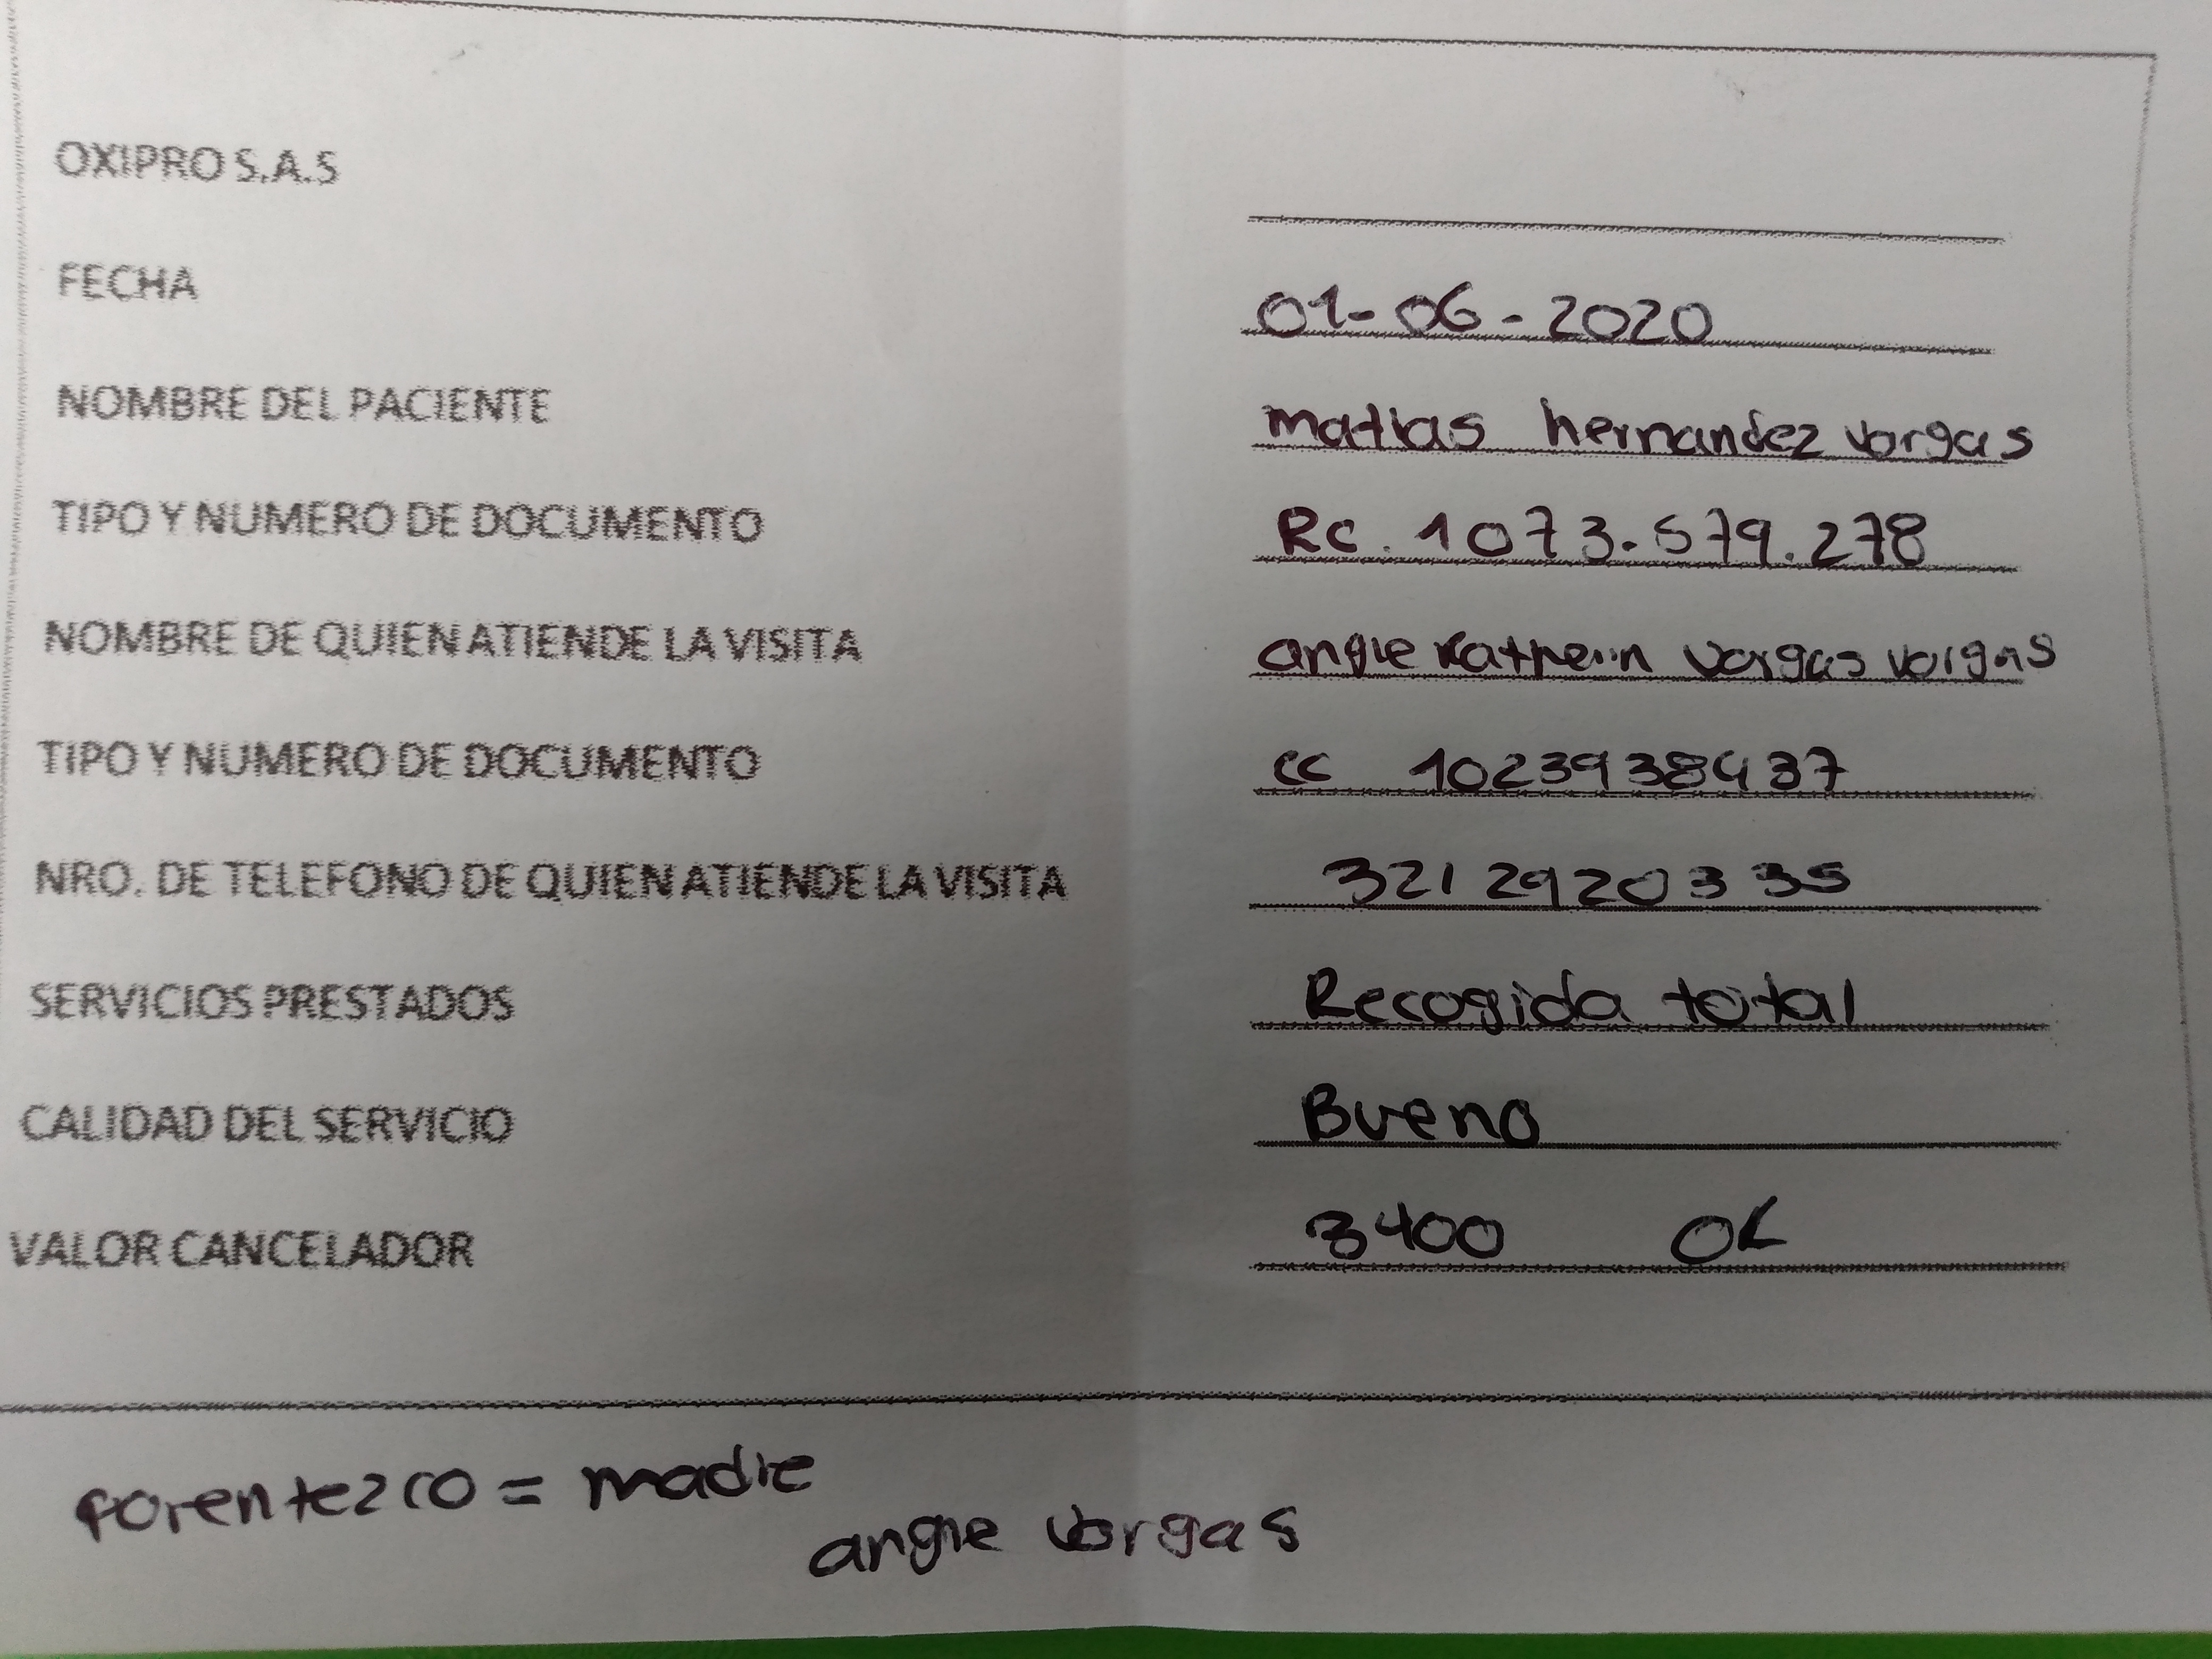 OXIPRO S.A.S
FECHA 01-06-2020
NOMBRE DEL PACIENTE matias hernandez vargas
TIPO Y NUMERO DE DOCUMENTO Rc. 1073.579.278
NOMBRE DE QUIEN ATIENDE LA VISITA angie Katherin vargas vargas
TIPO Y NUMERO DE DOCUMENTO cc 1023938437
NRO. DE TELEFONO DE QUIEN ATIENDE LA VISITA 3212920335
SERVICIOS PRESTADOS Recogida total
CALIDAD DEL SERVICIO Bueno
VALOR CANCELADOR 3400 OK
parentezco = madre
angie vargas